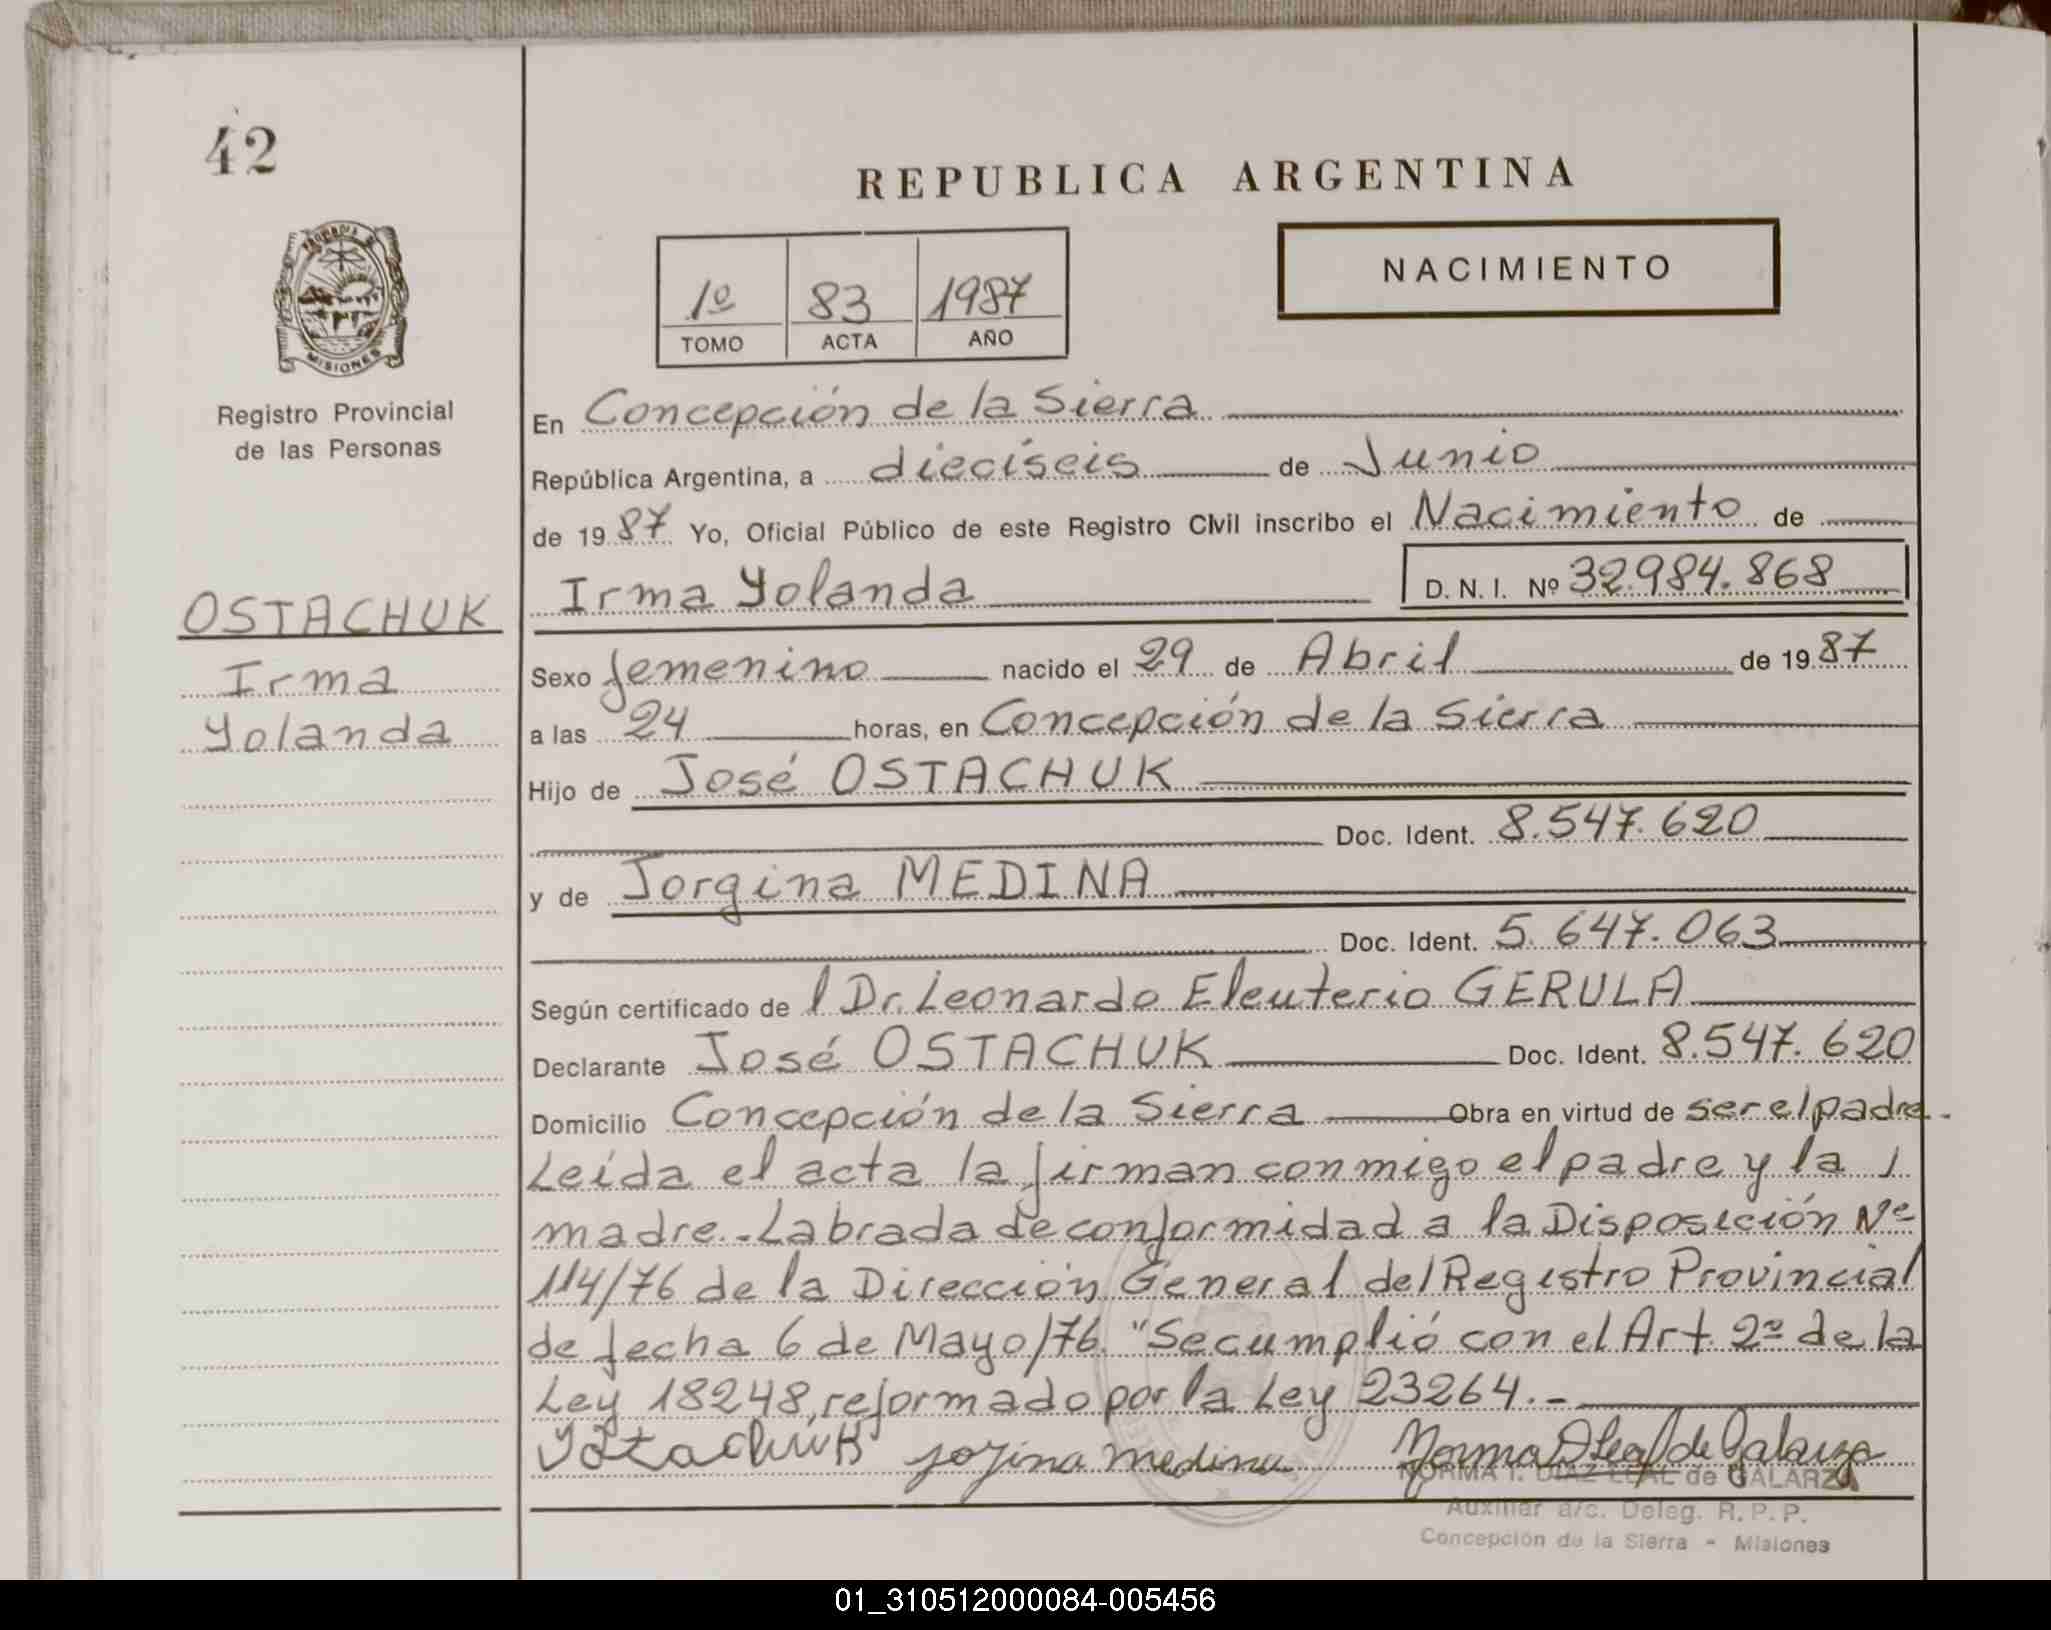 42
REPUBLICA ARGENTINA
NACIMIENTO
1º 83 1987
TOMO ACTA AÑO
PROVINCIA DE
MISIONES
Registro Provincial
de las Personas
OSTACHUK
Irma
Yolanda
En Concepción de la Sierra
República Argentina, a dieciseis de Junio
de 1987 Yo, Oficial Público de este Registro Civil inscribo el Nacimiento de
Irma Yolanda D. N. I. Nº 32.984.868
Sexo femenino nacido el 29 de Abril de 1987
a las 24 horas, en Concepción de la Sierra
Hijo de José OSTACHUK
Doc. Ident. 8.547.620
y de Jorgina MEDINA
Doc. Ident. 5.647.063
Según certificado de l Dr. Leonardo Eleuterio GERULA
Declarante José OSTACHUK Doc. Ident. 8.547.620
Domicilio Concepción de la Sierra Obra en virtud de ser el padre.
Leída el acta la firman conmigo el padre y la
madre.- Labrada de conformidad a la Disposición Nº
114/76 de la Dirección General del Registro Provincial
de fecha 6 de Mayo/76. "Se cumplió con el Art. 2º de la
Ley 18248, reformado por la Ley 23264.-
Ostachuk Jorjina medina Norma DLeal de Galarza
NORMA I. DIAZ LEAL de GALARZA
Auxiliar a/c. Deleg. R. P. P.
Concepción de la Sierra - Misiones
01_310512000084-005456